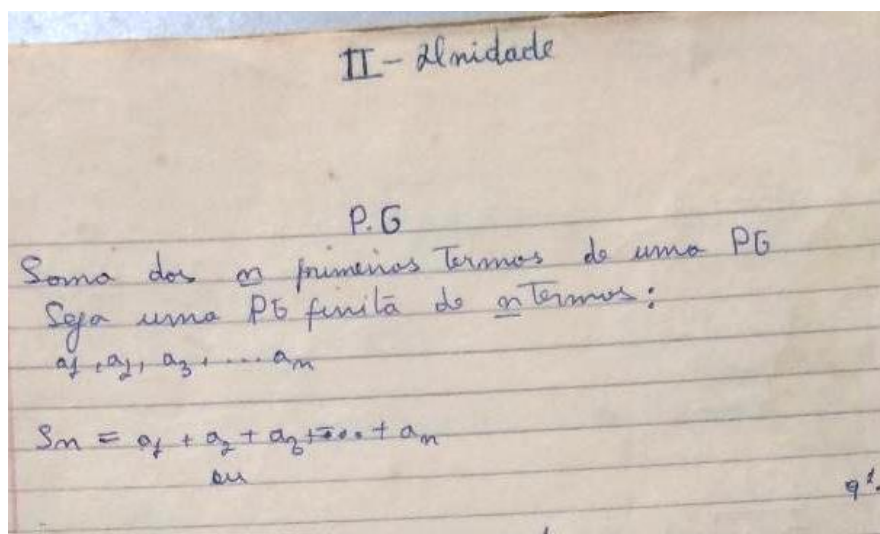 II - Unidade
P.G
Soma dos n primeiros Termos de uma PG
Seja uma PG finita de n Termos:
a1, a2, a3, .... an
Sn = a1 + a2 + a3 + ... + an
ou